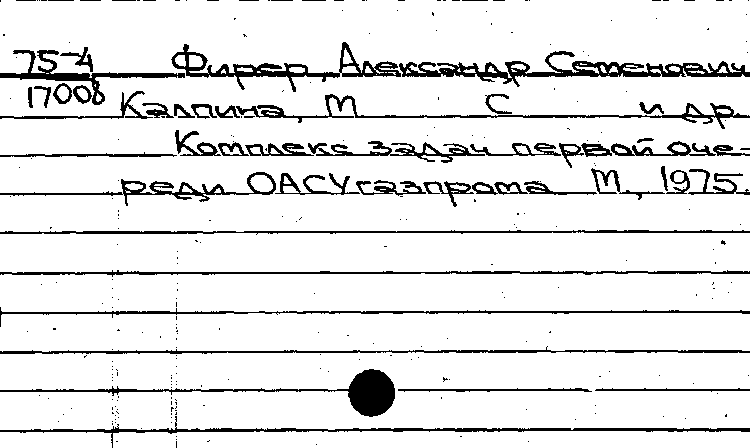 75-4 Фирер, Александр Семенович
17008 Калпина, М С и др.
Комплекс задач первой оче-
реди ОАСУгазпрома М., 1975.